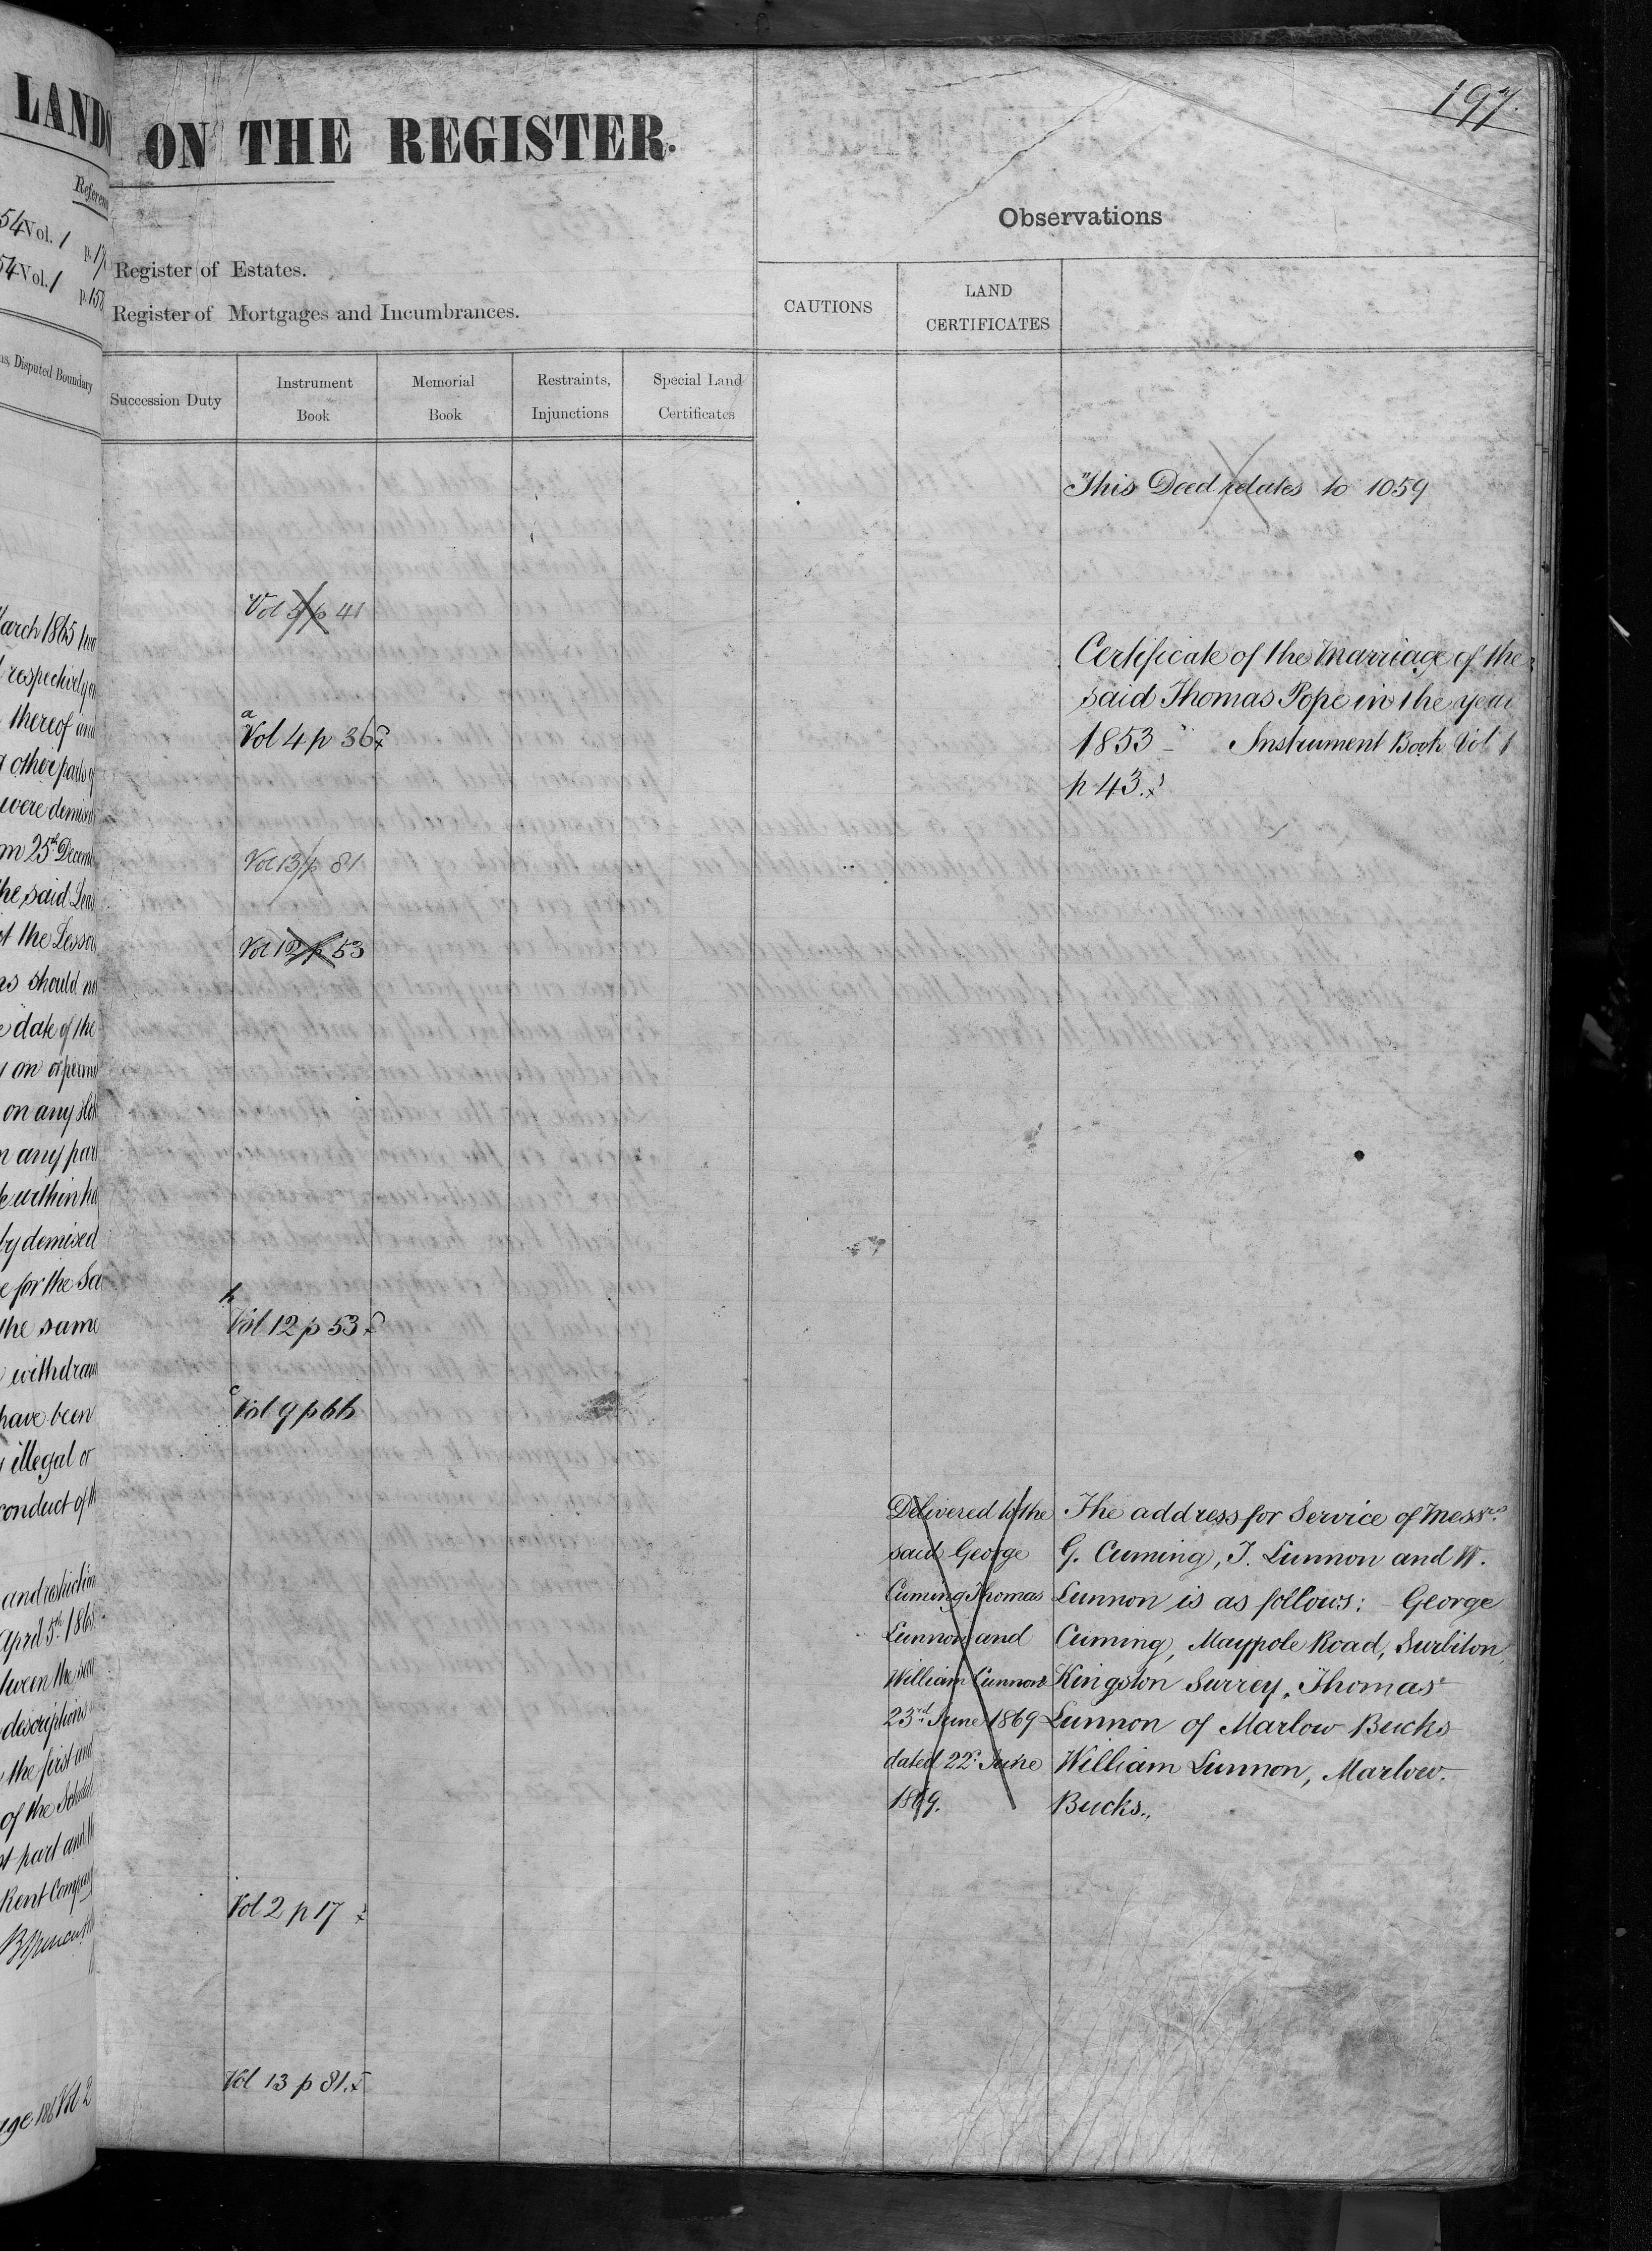 LANDS
54 Vol. 1
54 Vol. 1 p. 157
ns, Disputed Boundary
March 1865 two
respectively on
thereof and
other parts of
were demised
om 25th Decem
the said Leas
of the Lessor
as should not
date of the
on or permi
on any slot
n any part
te within ha
by demised
e for the Sa
the same
withdrawn
have been
illegal or
conduct of th
and restriction
April 5th 1865
descriptions
the first and
of the Schedule
st part and th
Rent Company
Vol 2
197.
ON THE REGISTER.
Observations
Register of Estates.
Register of Mortgages and Incumbrances.
CAUTIONS
LAND
CERTIFICATES
Succession Duty
Instrument
Book
Memorial
Book
Restraints,
Injunctions
Special Land
Certificates
This Deed relates to 1059
Vol 5 p 41
Certificate of the Marriage of the
said Thomas Pope in the year
1853 – Instrument Book Vol 1
p 43.
a
Vol 4 p 36
Vol 13 p 81
Vol 12 p 53
b
Vol 12 p 53
c
Vol 9 p 66
Delivered to the
said George
Cuming Thomas
Lunnon and
William Lunnon
23rd June 1869
dated 22d June
1869.
The address for Service of Messrs.
G. Cuming, T. Lunnon and W.
Lunnon is as follows: – George
Cuming, Maypole Road, Surbiton,
Kingston Surrey, Thomas
Lunnon of Marlow Bucks
William Lunnon, Marlow.
Bucks.
Vol 2 p 17
Vol 13 p 81.